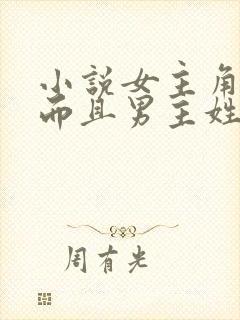 小說女主角
而且男主姓
周有光